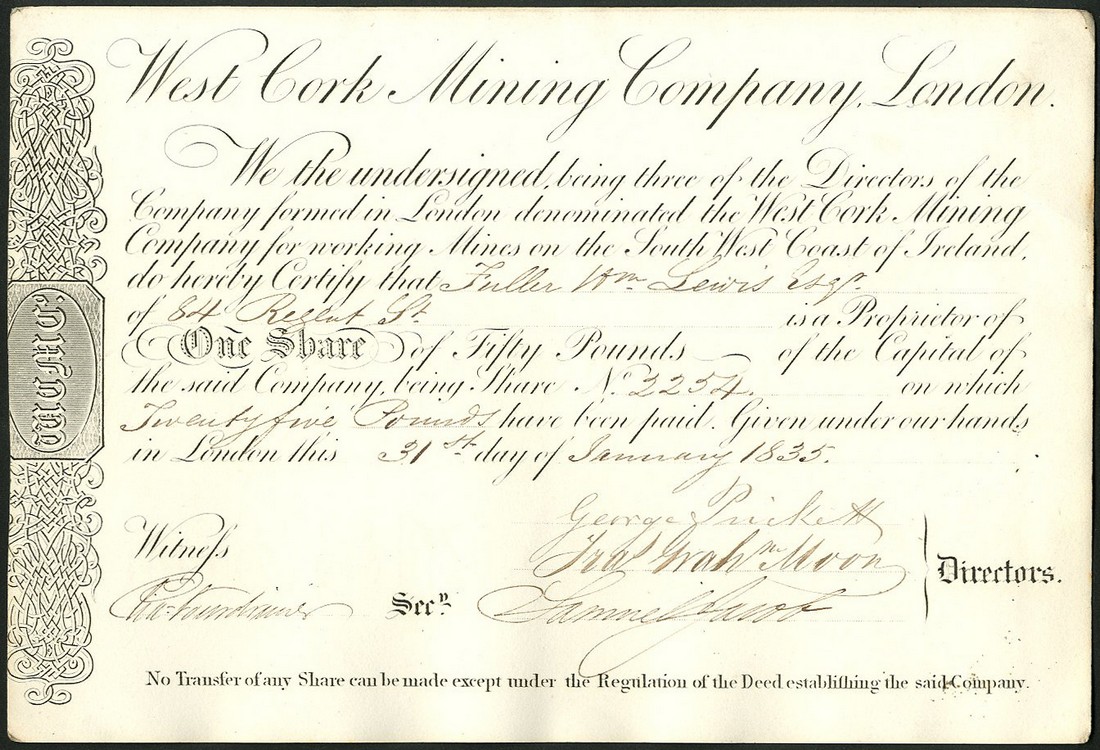 West Cork Mining Company, London.
We the undersigned, being three of the Directors of the
Company formed in London denominated the West Cork Mining
Company for working Mines on the South West Coast of Ireland,
do hereby Certify that Fuller Wm Lewis Esqr.
of 84 Regent St. is a Proprietor of
One Share of Fifty Pounds of the Capital of
the said Company, being Share No. 2254. on which
Twentyfive Pounds have been paid. Given under our hands
in London this 31st day of January 1835.
W.C.M.Co.
George Prickett
Witneſs
Moon
Directors.
Secy.
Samuel Jacob
No Transfer of any Share can be made except under the Regulation of the Deed establiſhing the said Company.